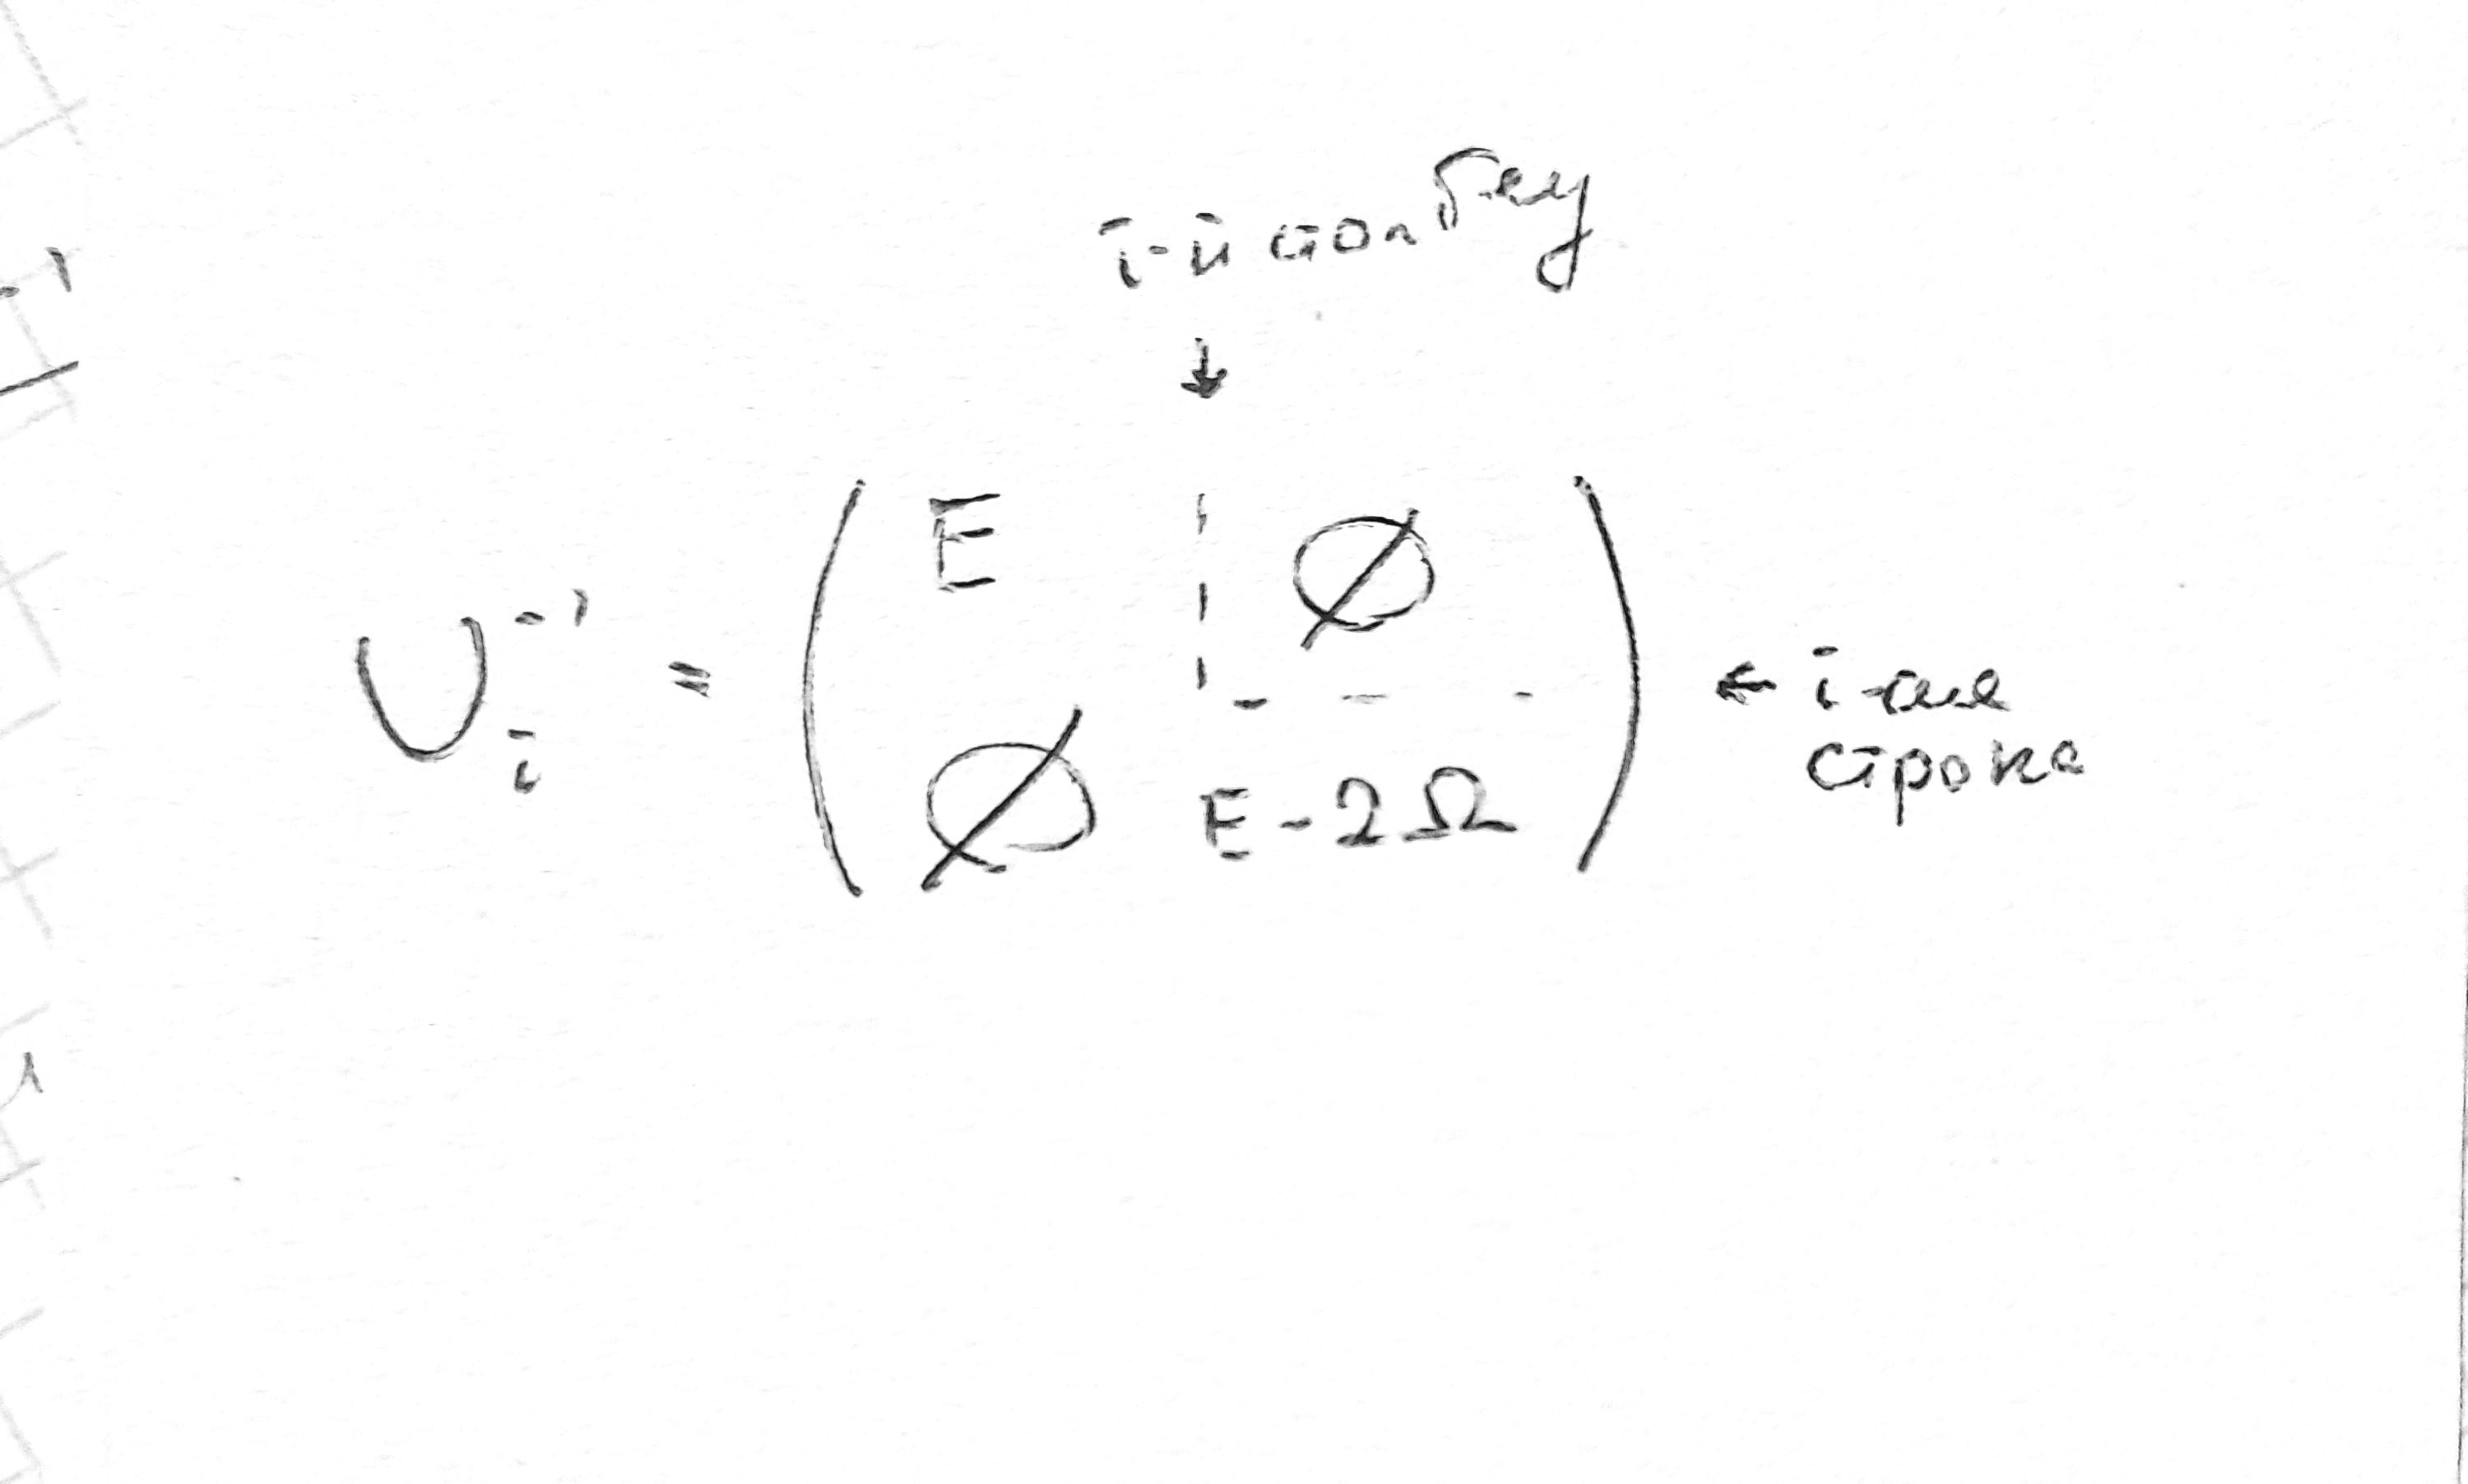 i-й столбец
↓
U_i^{-1} = ( E ¦ ∅
∅ E - 2Ω ) ← i-ая
строка